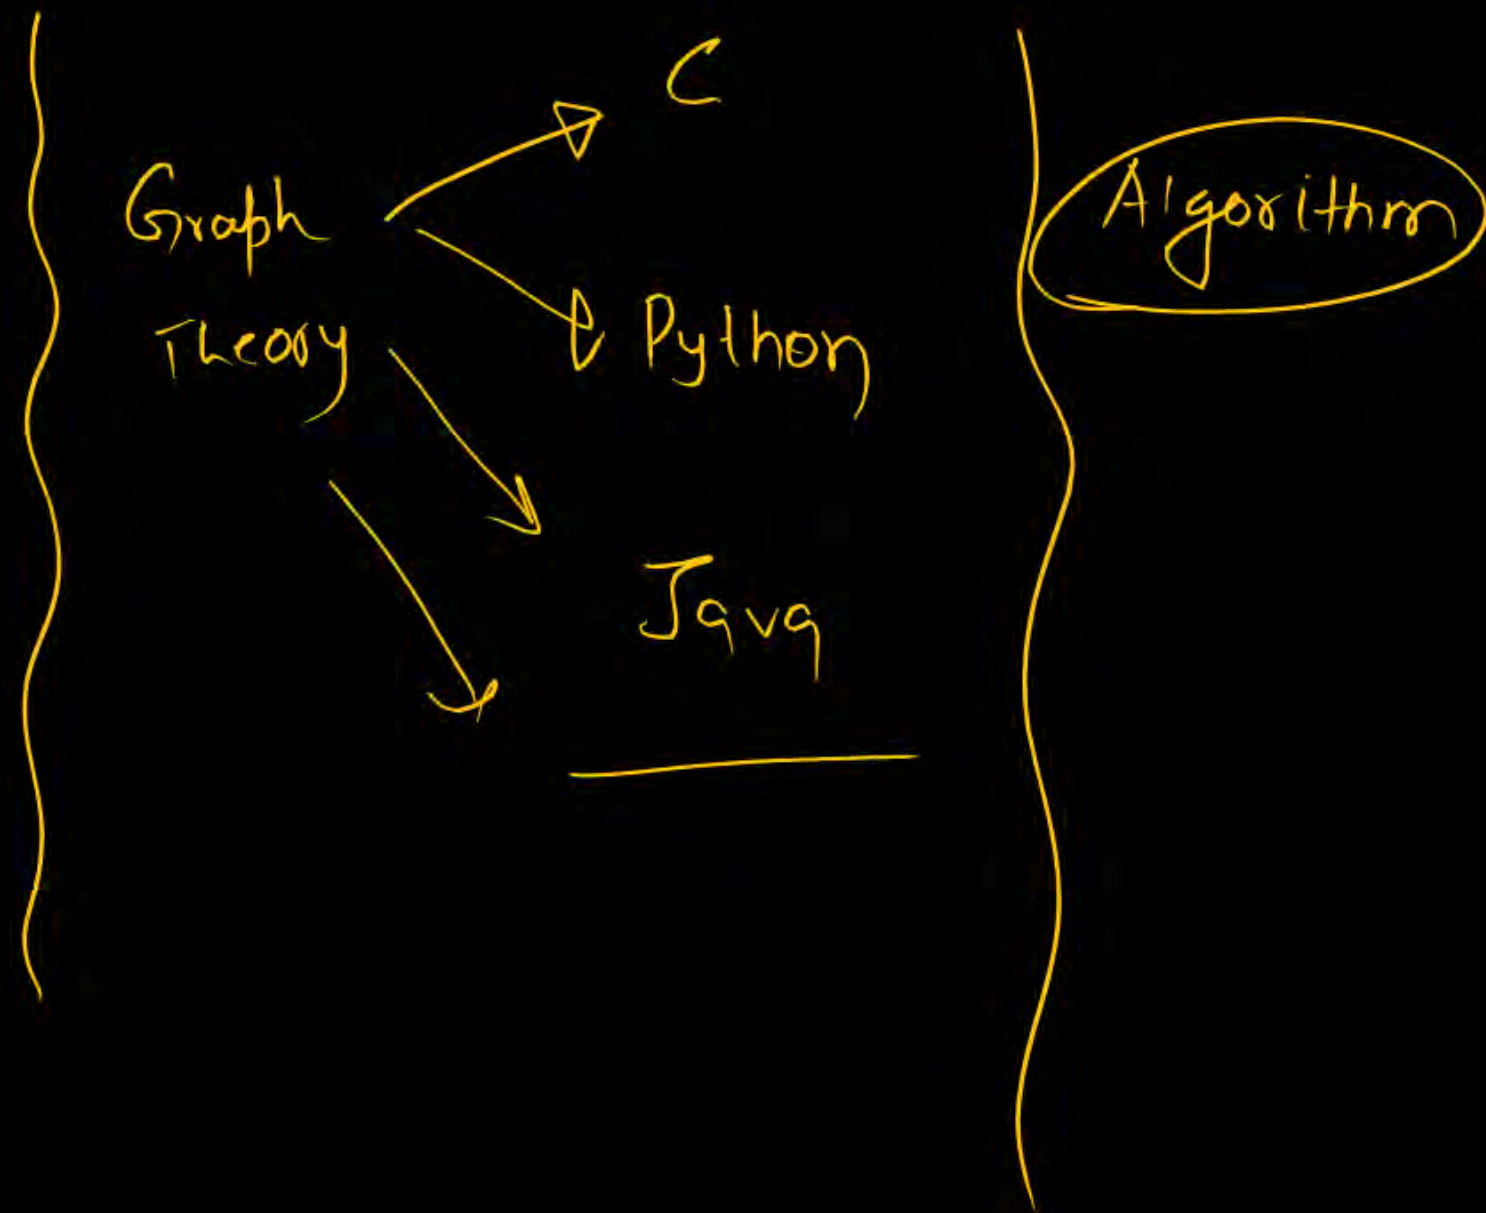 C
Graph
Theory
Python
Java
Algorithm